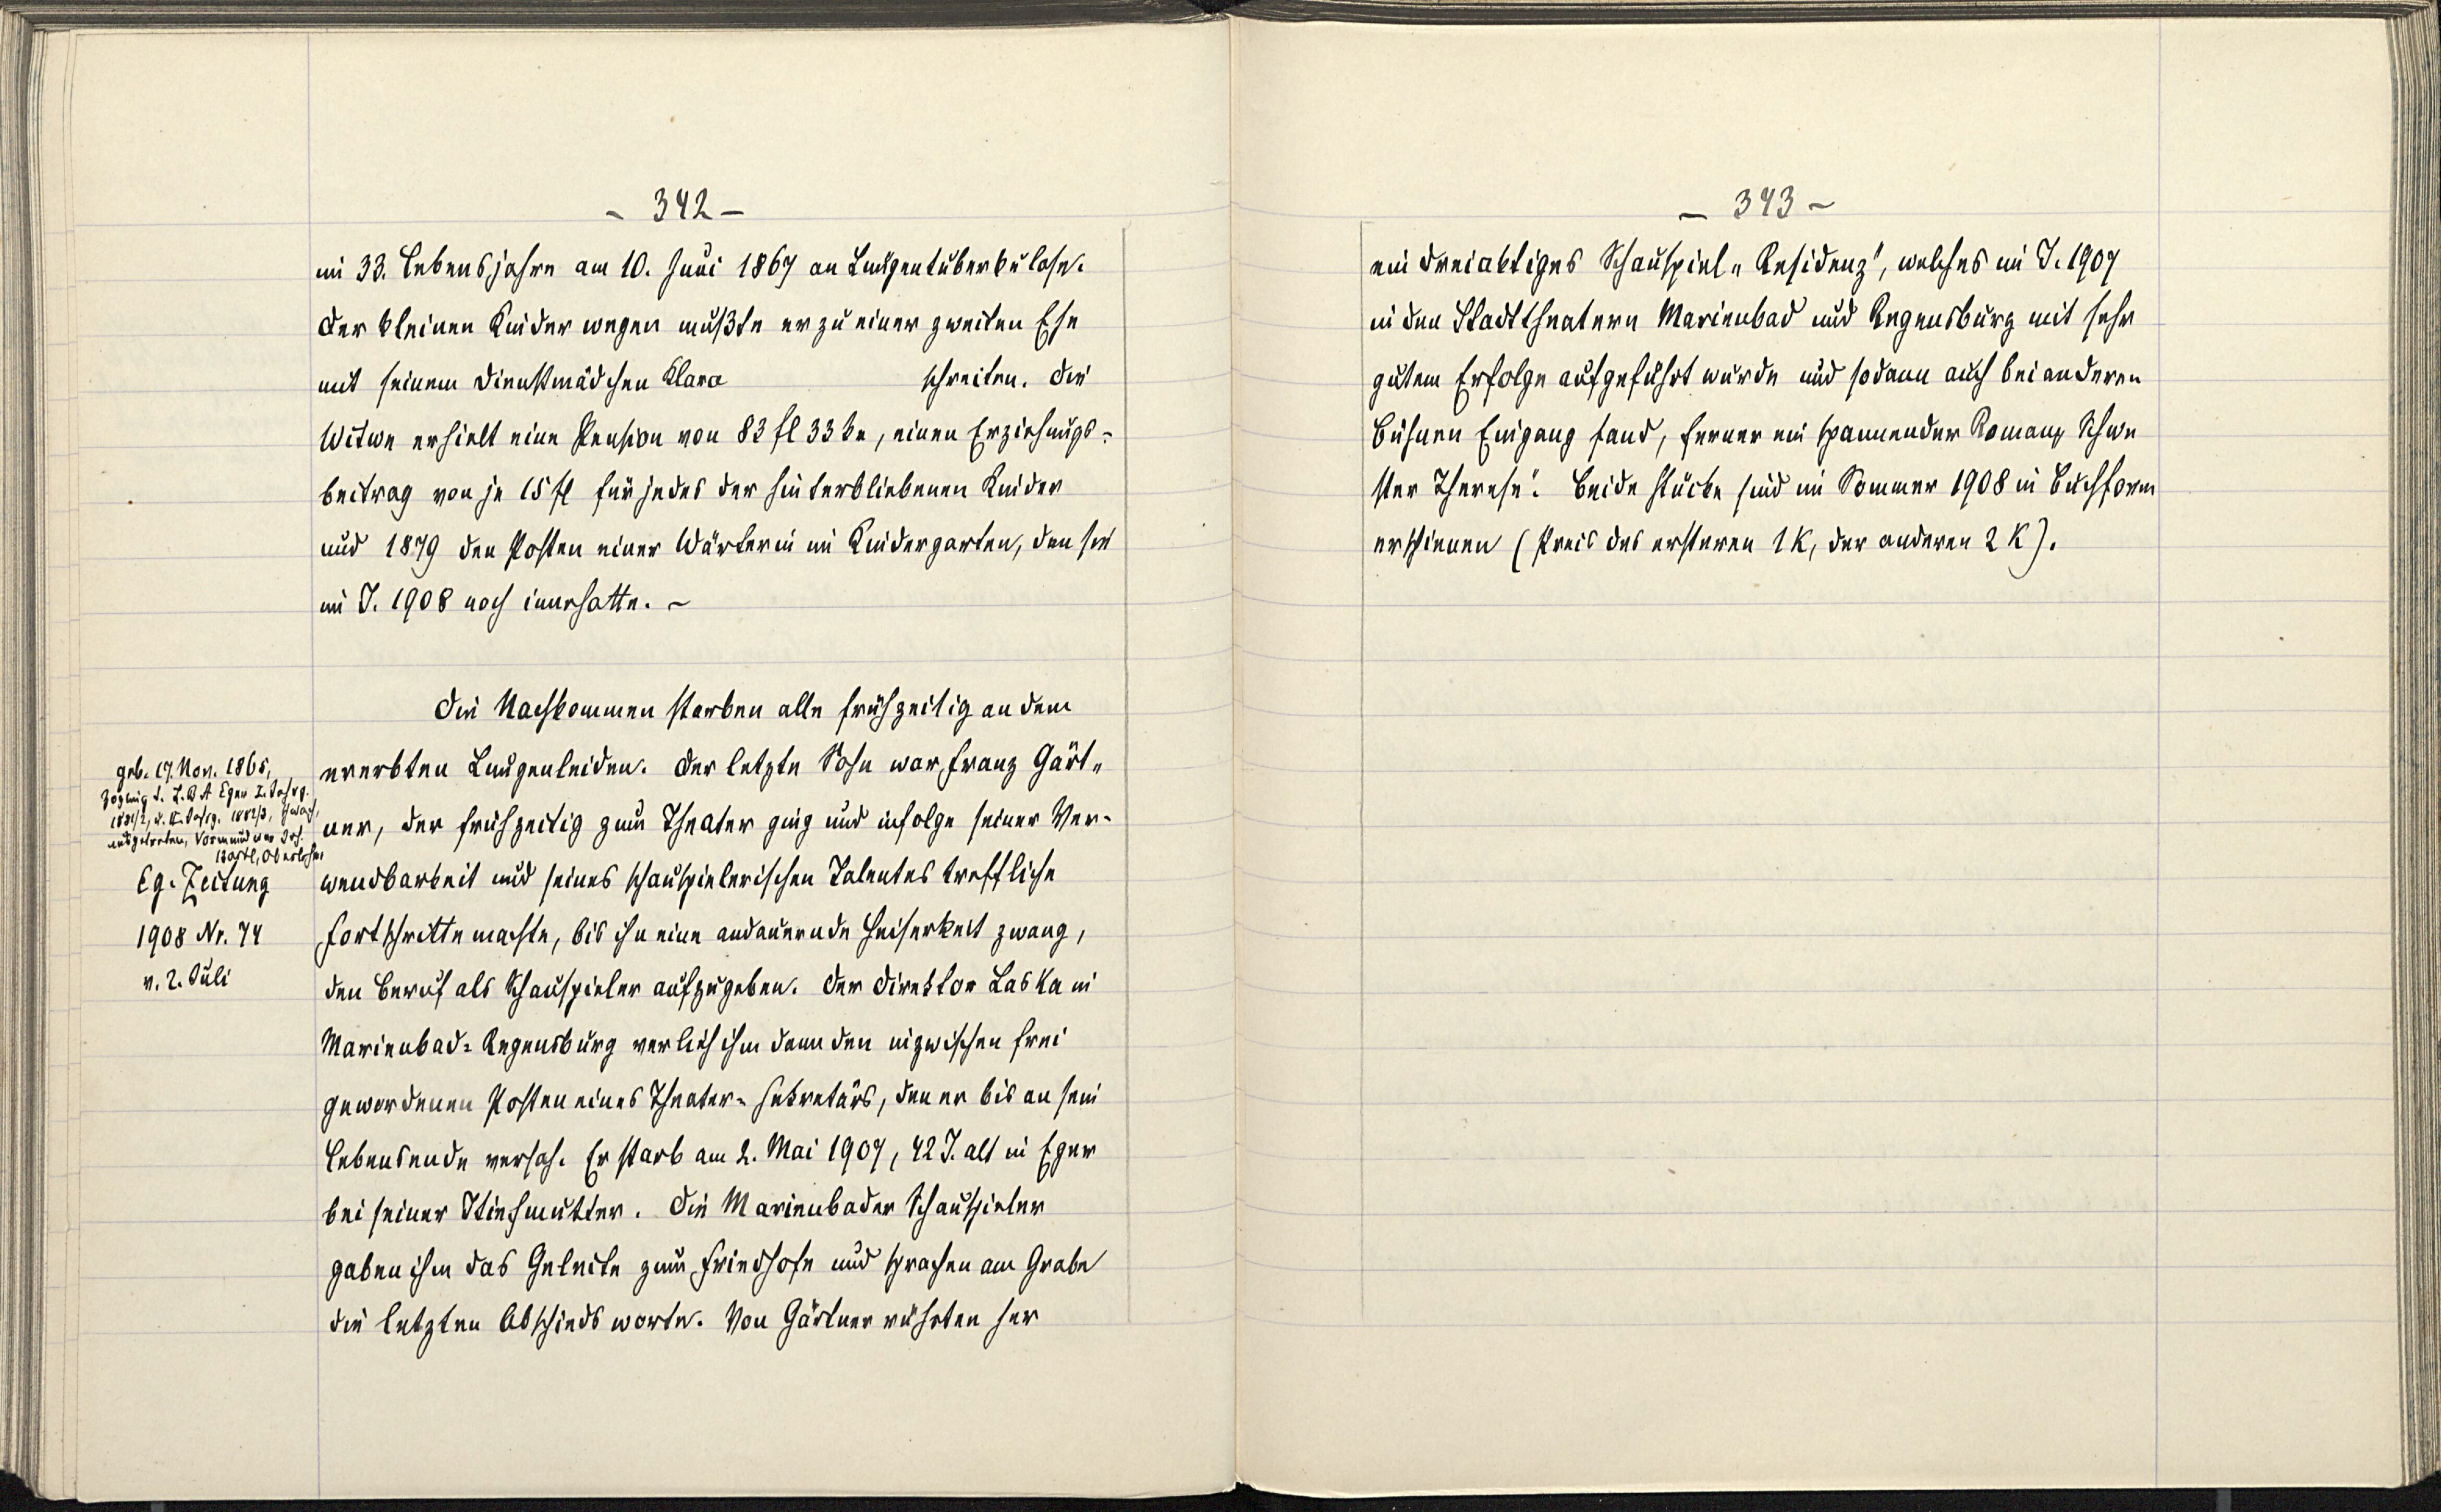 - 342 -
im 33. Lebensjahre am 10. Juni 1867 an Lungentuberkulose.
Der kleinen Kinder wegen mußte er zu einer zweiten Ehe
mit seinem Dienstmädchen Klara schreiten. Die
Witwe erhielt eine Pension von 83 fl 33 kr, einen Erziehungs-
beitrag von je 15 fl für jedes der hinterbliebenen Kinder
und 1879 den Posten einer Wärterin im Kindergarten, den sie
im J. 1908 noch innehatte. -
Die Nachkommen starben alle frühzeitig an dem
ererbten Lungenleiden. Der letzte Sohn war Franz Gärt-
ner, der frühzeitig zum Theater ging und infolge seiner Ver-
wendbarkeit und seines schauspielerischen Talentes treffliche
Fortschritte machte, bis ihn eine andauernde Heiserkeit zwang,
den Beruf als Schauspieler aufzugeben. Der Direktor Laska in
Marienbad-Regensburg verlieh ihm dann den inzwischen frei
gewordenen Posten eines Theater-Sekretärs, den er bis an sein
Lebensende versah. Er starb am 2. Mai 1907, 42 J. alt in Eger
bei seiner Stiefmutter. Die Marienbader Schauspieler
gaben ihm das Geleite zum Friedhofe und sprachen am Grabe
die letzten Abschiedsworte. Von Gärtner rührten her
geb. 17. Nov. 1865,
Zögling d. L.B.A Eger I. Jahrg.
1881/2, d. II. Jahrg. 1882/3,
ausgetreten, Vormund war Jos.
Bartl, Oberlehrer
Eg. Zeitung
1908 Nr. 74
v. 2. Juli
- 343 -
ein dreiaktiges Schauspiel „Residenz", welches im J. 1907
in den Stadttheatern Marienbad und Regensburg mit sehr
gutem Erfolge aufgeführt wurde und sodann auch bei anderen
Bühnen Eingang fand, ferner ein spannender Roman „Schwe
ster Therese". Beide Stücke sind im Sommer 1908 in Buchform
erschienen (Preis des ersteren 1 K, der anderen 2 K).